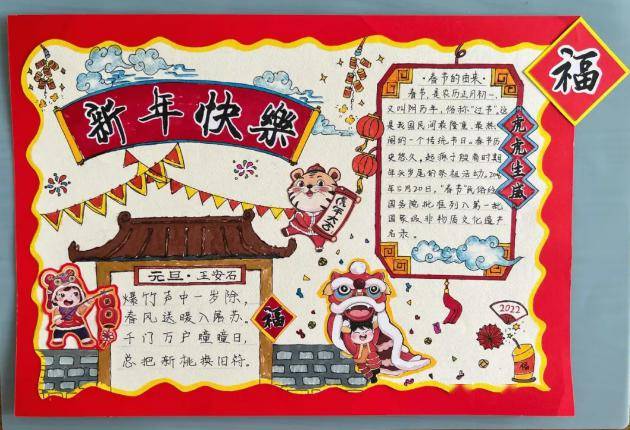 新年快樂
福
·春节的由来·
春节，是农历正月初一，
又叫阴历年，俗称“过节”。这
是我国民间最隆重、最热
闹的一个传统节日。春节历
史悠久，起源于殷商时期
年头岁尾的祭祖活动。
年5月20日，“春节”民俗经
国务院批准列入第一批
国家级非物质文化遗产
名录。
虎虎生威
虎年大吉
元旦·王安石
爆竹声中一岁除，
春风送暖入屠苏。
千门万户曈曈日，
总把新桃换旧符。
福
2022
福